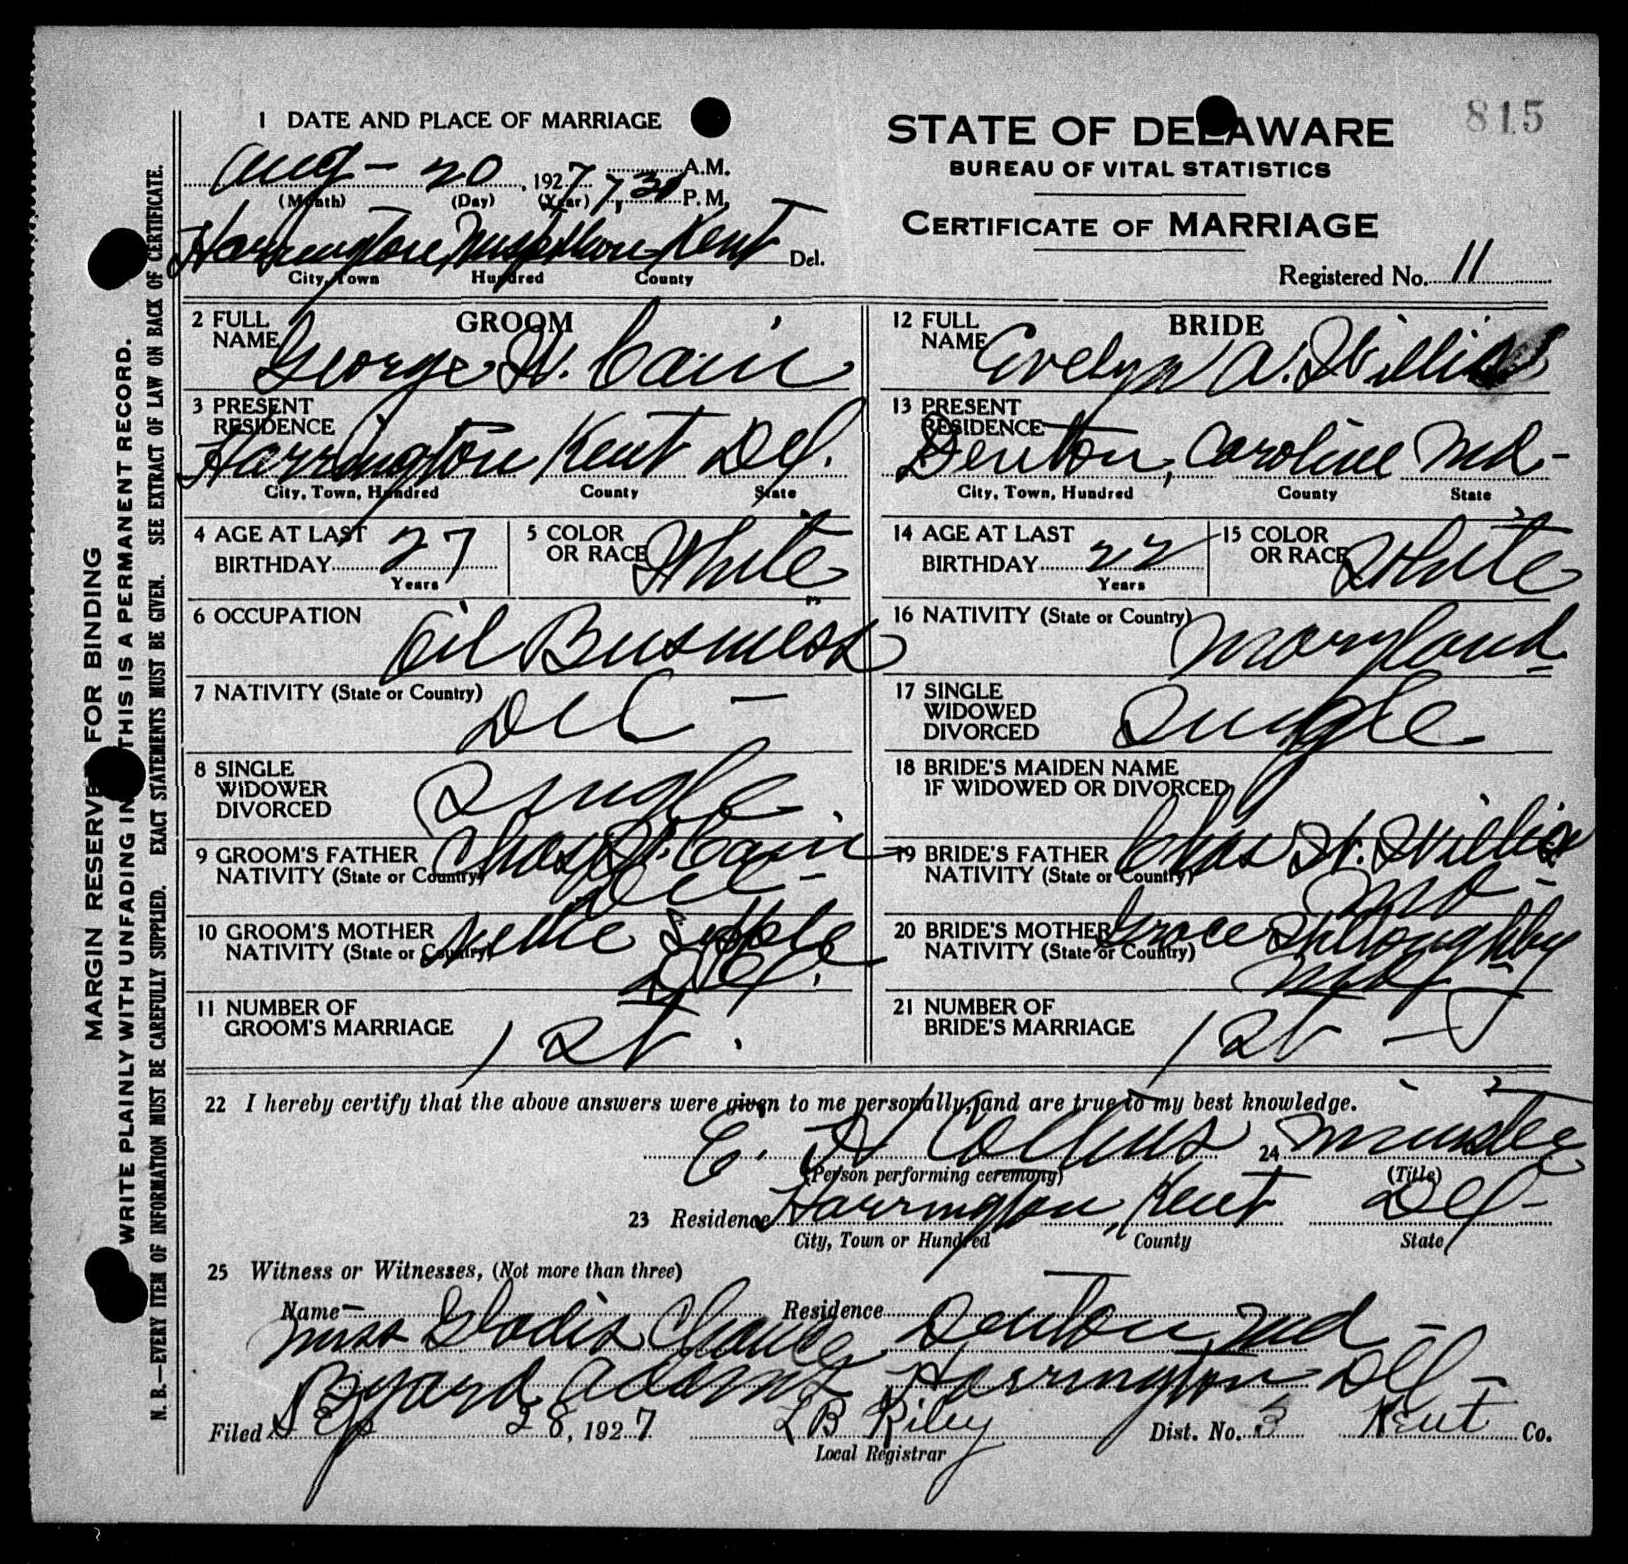 815
1 DATE AND PLACE OF MARRIAGE
Aug - 20, 1927 7,30 A.M. P.M.
(Month) (Day) (Year)
Harrington Kent Del.
City, Town Hundred County
STATE OF DELAWARE
BUREAU OF VITAL STATISTICS
CERTIFICATE OF MARRIAGE
Registered No. 11
GROOM
2 FULL NAME George W. Cain
3 PRESENT RESIDENCE
Harrington Kent Del.
City, Town, Hundred County State
4 AGE AT LAST BIRTHDAY 27 Years
5 COLOR OR RACE White
6 OCCUPATION Oil Business
7 NATIVITY (State or Country) Del -
8 SINGLE WIDOWER DIVORCED Single
9 GROOM'S FATHER Chas Cain
NATIVITY (State or Country) Del -
10 GROOM'S MOTHER Nellie
NATIVITY (State or Country) Del.
11 NUMBER OF GROOM'S MARRIAGE 1st.
BRIDE
12 FULL NAME Evelyn A. Willis
13 PRESENT RESIDENCE
Denton, Caroline Md -
City, Town, Hundred County State
14 AGE AT LAST BIRTHDAY 22 Years
15 COLOR OR RACE White
16 NATIVITY (State or Country) Maryland
17 SINGLE WIDOWED DIVORCED Single
18 BRIDE'S MAIDEN NAME IF WIDOWED OR DIVORCED
19 BRIDE'S FATHER Chas W. Willis
NATIVITY (State or Country) Md -
20 BRIDE'S MOTHER Grace Willoughby
NATIVITY (State or Country) Md -
21 NUMBER OF BRIDE'S MARRIAGE 1st -
22 I hereby certify that the above answers were given to me personally, and are true to my best knowledge.
E. H Collins 24 Minister
(Person performing ceremony) (Title)
23 Residence Harrington, Kent Del -
City, Town or Hundred County State
25 Witness or Witnesses, (Not more than three)
Name Residence
Miss Gladis Chance Denton, Md -
Byard Adams Harrington Del -
Filed Sep 28, 1927 L B Riley Dist. No. 3 Kent Co.
Local Registrar
MARGIN RESERVED FOR BINDING
WRITE PLAINLY WITH UNFADING INK THIS IS A PERMANENT RECORD.
N. B.—EVERY ITEM OF INFORMATION MUST BE CAREFULLY SUPPLIED. EXACT STATEMENTS MUST BE GIVEN. SEE EXTRACT OF LAW ON BACK OF CERTIFICATE.